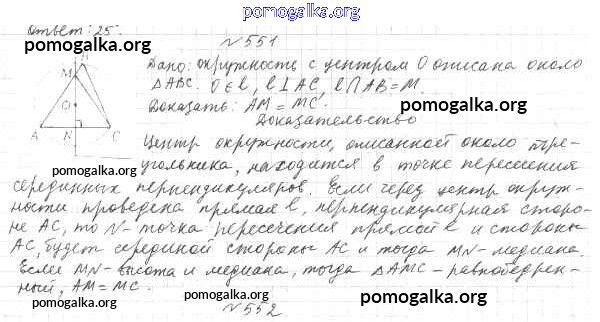 pomogalka.org
Ответ: 25.
№551
pomogalka.org
pomogalka.org
Дано: окружность с центром O описана около
ΔABC. O∈ℓ, ℓ⊥AC, ℓ∩AB=M.
Доказать: AM=MC.
pomogalka.org
Доказательство
M
O
A N C
pomogalka.org
Центр окружности, описанной около тре-
угольника, находится в точке пересечения
серединных перпендикуляров. Если через центр окруж-
ности проведена прямая ℓ, перпендикулярная сторо-
не AC, то N - точка пересечения прямой ℓ и стороны
AC, будет серединой стороны AC и тогда MN - медиана.
pomogalka.org
pomogalka.org
Если MN - высота и медиана, тогда ΔAMC - равнобедрен-
ный, AM=MC.
pomogalka.org
pomogalka.org
№552